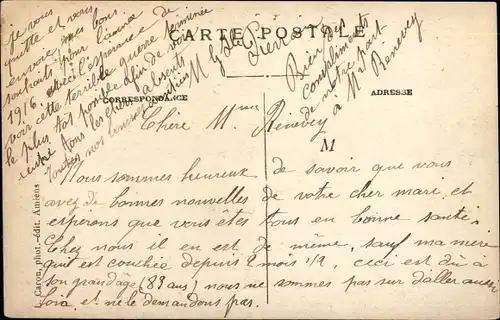 CARTE POSTALE
CORRESPONDANCE
ADRESSE
M
L. Caron, phot.-édit. Amiens
Chère Mme Bénévey
Nous sommes heureux de savoir que vous
avez de bonnes nouvelles de votre cher mari et
espérons que vous êtes tous en bonne santé.
Chez nous il en est de même, sauf ma mère
qui est couchée depuis 2 mois 1/2, ceci est dû à
son grand âge (89 ans) nous ne sommes pas sur d'aller aussi
loin et ne le demandons pas.
Je vous
quitte et vous
envoie mes bons
souhaits pour l'année
1916. avec l'espérance de
voir cette terrible guerre terminée
le plus tot possible afin de voir
tous les chers absents
Bien des
compliments
de notre part
à Mr Bénévey